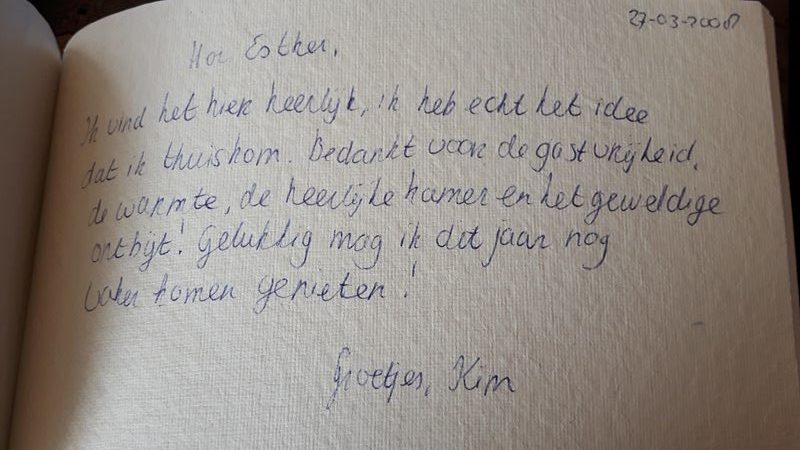 27-03-2008
Hoi Esther,
Ik vind het hier heerlijk, ik heb echt het idee
dat ik thuiskom. Bedankt voor de gastvrijheid,
de warmte, de heerlijke kamer en het geweldige
ontbijt! Gelukkig mag ik dit jaar nog
vaker komen genieten!
Groetjes, Kim